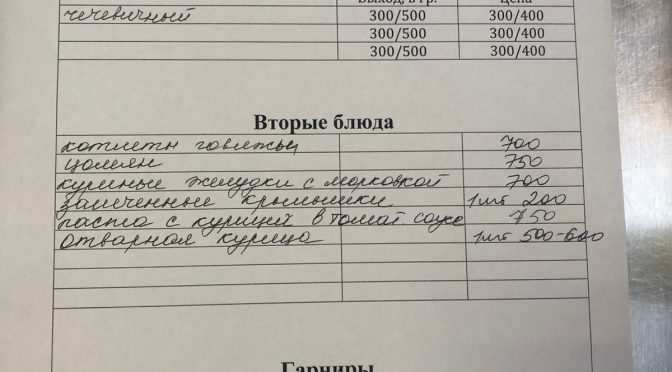 Выход, в гр. Цена
чечевичный 300/500 300/400
300/500 300/400
300/500 300/400
Вторые блюда
котлеты говяжьи 700
цомян 750
куриные желудки с морковкой 700
запеченные крылышки 1шт 200
паста с курицей в томат соусе 750
отварная курица 1шт 500-600
Гарниры